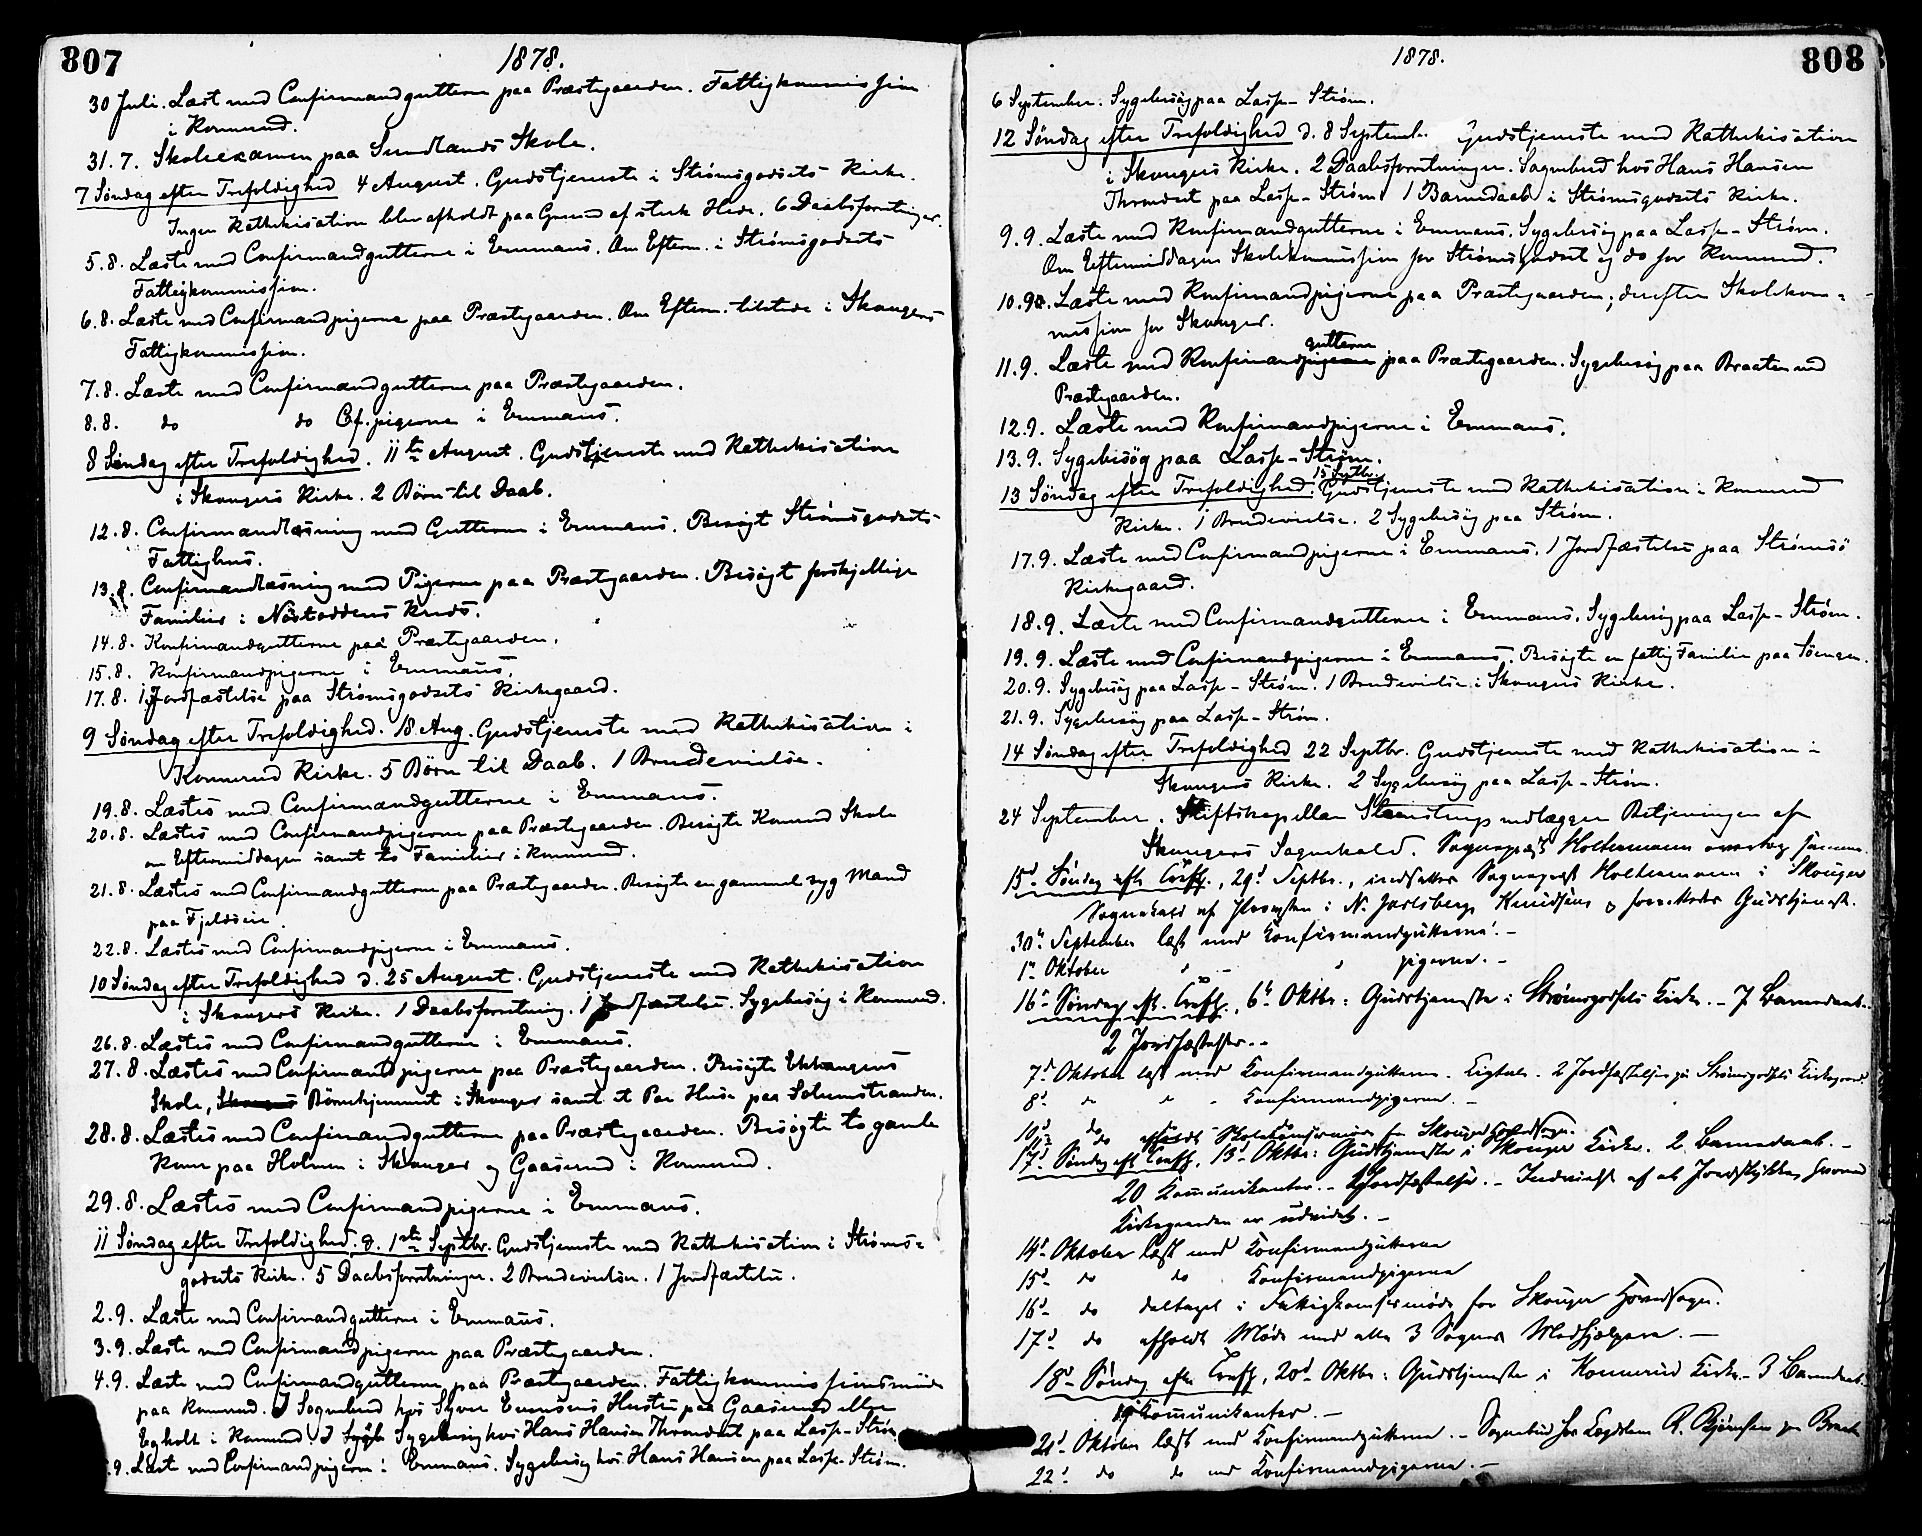 807
1878.
30 Juli. Læst med Confirmandgutterne paa Præstegaarden. Fattigkommission
i Konnerud.
31.7. Skoleexamen paa Sundlands Skole.
7 Søndag efter Trefoldighed 4 August. Gudstjeneste i Strømsgodsets Kirke.
Ingen Kathekisation blev afholdt paa Grund af sterk Hede. 6 Daabsforretninger.
5.8. Læste med Confirmandgutterne i Emmaus. Om Efterm. i Strømsgodsets
Fattigkommission.
6.8. Læste med Confirmandpigerne paa Præstegaarden. Om Efterm. tilstede i Skougers
Fattigkommission.
7.8. Læste med Confirmandgutterne paa Præstegaarden.
8.8. do do Cf.pigerne i Emmaus.
8 Søndag efter Trefoldighed. 11te August. Gudstjeneste med Kathekisation
i Skougers Kirke. 2 Børn til Daab.
12.8. Confirmandlæsning med Gutterne i Emmaus. Besøgt Strømsgodsets
Fattighus.
13.8. Confirmandlæsning med Pigerne paa Præstgaarden. Besøgt forskjellige
Familier i Næstoddens Kreds.
14.8. Konfirmandgutterne paa Præstegaarden.
15.8. Konfirmandpigerne i Emmaus.
17.8. 1 Jordfæstelse paa Strømsgodsets Kirkegaard.
9 Søndag efter Trefoldighed. 18 Aug. Gudstjeneste med Kathekisation i
Konnerud Kirke. 5 Børn til Daab. 1 Brudevielse.
19.8. Læstes med Confirmandgutterne i Emmaus.
20.8. Læstes med Confirmandpigerne paa Præstegaarden. Besøgte Konnerud Skole
om Eftermiddagen samt to Familier i Konnerud.
21.8. Læstes med Confirmandgutterne paa Præstegaarden. Besøgte en gammel syg Mand
paa Fjeldseie.
22.8. Læstes med Confirmandpigerne i Emmaus.
10 Søndag efter Trefoldighed d. 25 August. Gudstjeneste med Kathekisation
i Skougers Kirke. 1 Daabsforretning. 1 Jordfæstelse. Sygebesøg i Konnerud.
26.8. Læstes med Confirmandgutterne i Emmaus.
27.8. Læstes med Confirmandpigerne paa Præstegaarden. Besøgte
Skole, Skougers Børnehjemmet i Skouger samt et Par Huse paa Solumstranden.
28.8. Læstes med Confirmandgutterne paa Præstegaarden. Besøgte to gamle
Koner paa Holmen i Skouger og Gaaserud i Konnerud.
29.8. Læstes med Confirmandpigerne i Emmaus.
11 Søndag efter Trefoldighed. d. 1ste Septbr. Gudstjeneste med Kathekisation i Strøms-
godsets Kirke. 5 Daabsforretninger. 2 Brudevielser. 1 Jordfæstelse.
2.9. Læste med Confirmandgutterne i Emmaus.
3.9. Læste med Confirmandpigerne paa Præstegaarden.
4.9. Læste med Confirmandgutterne paa Præstgaarden. Fattigkommissionsmøde
paa Konnerud. I Sognebud hos Syver Hustru paa Gaaserud eller
Egholt i Konnerud. I Sygebesøg hos Hans Hansen Throndset paa Lasse-Strøm
.9. Læste med Confirmandpigerne i Emmaus. Sygebesøg hos Hans Hansen paa Lasse-Strøm.
808
1878.
6 September. Sygebesøg paa Lasse-Strøm.
12 Søndag efter Trefoldighed d. 8 Septembr. Gudstjeneste med Kathekisation
i Skougers Kirke. 2 Daabsforretninger. Sognebud hos Hans Hansen
Throndset paa Lasse-Strøm. 1 Barnedaab i Strømsgodsets Kirke.
9.9. Læste med Konfirmandgutterne i Emmaus. Sygebesøg paa Lasse-Strøm.
Om Eftermiddagen Skolekommission for Strømsgodset og do for Konnerud.
10.9. Læste med Konfirmandpigerne paa Præstegaarden; derefter Skolekom-
mission for Skouger.
gutterne
11.9. Læste med Konfirmandpigerne paa Præstegaarden. Sygebesøg paa Braaten ved
Præstegaarden.
12.9. Læste med Konfirmandpigerne i Emmaus.
13.9. Sygebesøg paa Lasse-Strøm.
15 Septbr.
13 Søndag efter Trefoldighed. Gudstjeneste med Kathekisation i Konnerud
Kirke. 1 Brudevielse. 2 Sygebesøg paa Strøm.
17.9. Læste med Confirmandpigerne i Emmaus. 1 Jordfæstelse paa Strømsø
Kirkegaard.
18.9. Læste med Confirmandgutterne i Emmaus. Sygebesøg paa Lasse-Strøm.
19.9. Læste med Confirmandpigerne i Emmaus. Besøgte en fattig Familie paa
20.9. Sygebesøg paa Lasse-Strøm. 1 Brudevielse i Skougers Kirke.
21.9. Sygebesøg paa Lasse-Strøm.
14 Søndag efter Trefoldighed 22 Septbr. Gudstjeneste med Kathekisation i
Skougers Kirke. 2 Sygebesøg paa Lasse-Strøm.
24 September. Stiftskapellan Steenstrup nedlægger Betjeningen af
Skougers Sognekald. Sognepræst Holtermann overtog samme.
15d. Søndag eft. Trefh., 29d Septbr., indsattes Sognepræst Holtermann i Skouger
Sognekald af Provsten i N. Jarlsberg, Knudsen & forrettede Gudstjenest.
30te September læst med Konfirmandgutterne. -
1te Oktober " " pigerne. -
16de Søndag eft. Trefh., 6te Oktbr: Gudstjeneste i Strømsgodsets Kirke. - 7 Barnedaab. -
2 Jordfæstelser. -
7d Oktober læst med Konfirmandgutterne. 2 Jordfæstelser paa Strømsgodsets Kirkegaard.
8d do do Konfirmandpigerne. -
10d do afholdt Skolekommission for Skouger Hovedsogn.
17d. Søndag eft. Trefh., 13d Oktbr: Gudstjeneste i Skouger Kirke. 2 Barnedaab. -
20 Kommunikanter. - Jordfæstelse. - Indvielse af et Jordstykke, hvormed
Kirkegaarden er udvidet. -
14d Oktober læst med Konfirmandgutterne
15d do do Konfirmandpigerne
16d do deltaget i Fattigkom. møde for Skouger Hovedsogn.
17d do afholdt Møde med alle 3 Sognes Medhjælpere. -
18d Søndag efter Trefh., 20d Oktbr: Gudstjeneste i Konnerud Kirke. - 3 Barnedaab.
Kommunikanter. -
21d Oktober læst med Konfirmandgutterne. - Sognebud hos
22d do do med Konfirmandpigerne. -